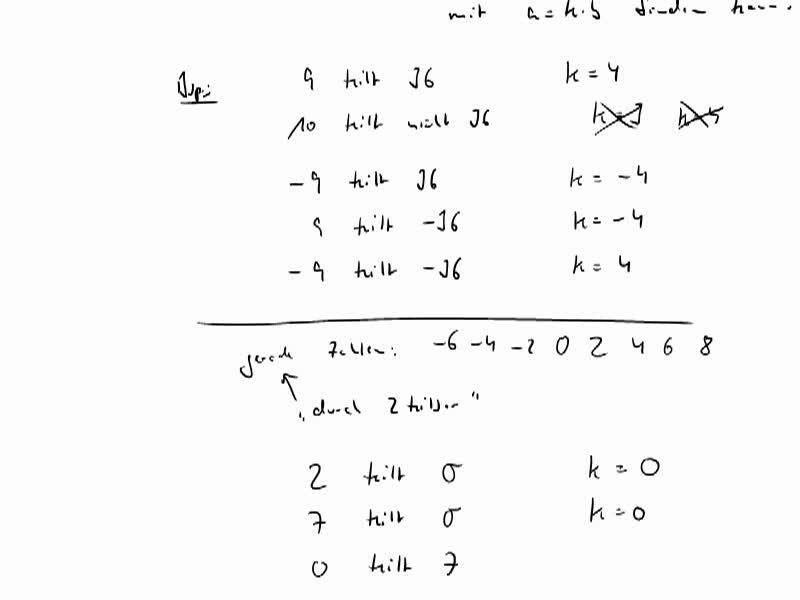 mit a = k·b finden kann.
Bsp: 9 teilt 36 k = 4
10 teilt nicht 36 k=3 k=4
-9 teilt 36 k = -4
9 teilt -36 k = -4
-9 teilt -36 k = 4
gerade Zahlen: -6 -4 -2 0 2 4 6 8
"durch 2 teilbar"
2 teilt 0 k = 0
7 teilt 0 k = 0
0 teilt 7